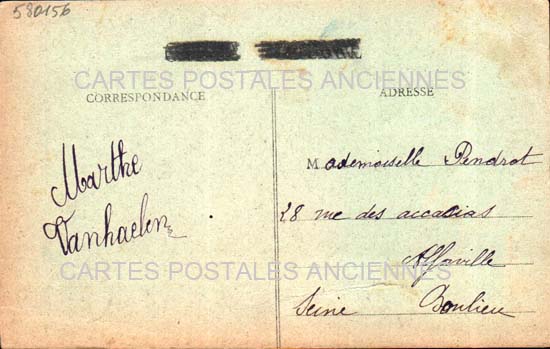 580156
CARTES POSTALES ANCIENNES
CORRESPONDANCE
ADRESSE
Marthe
Vanhaelen
Mademoiselle Pendrot
28 rue des accacias
Alfortville
Seine
CARTES POSTALES ANCIENNES